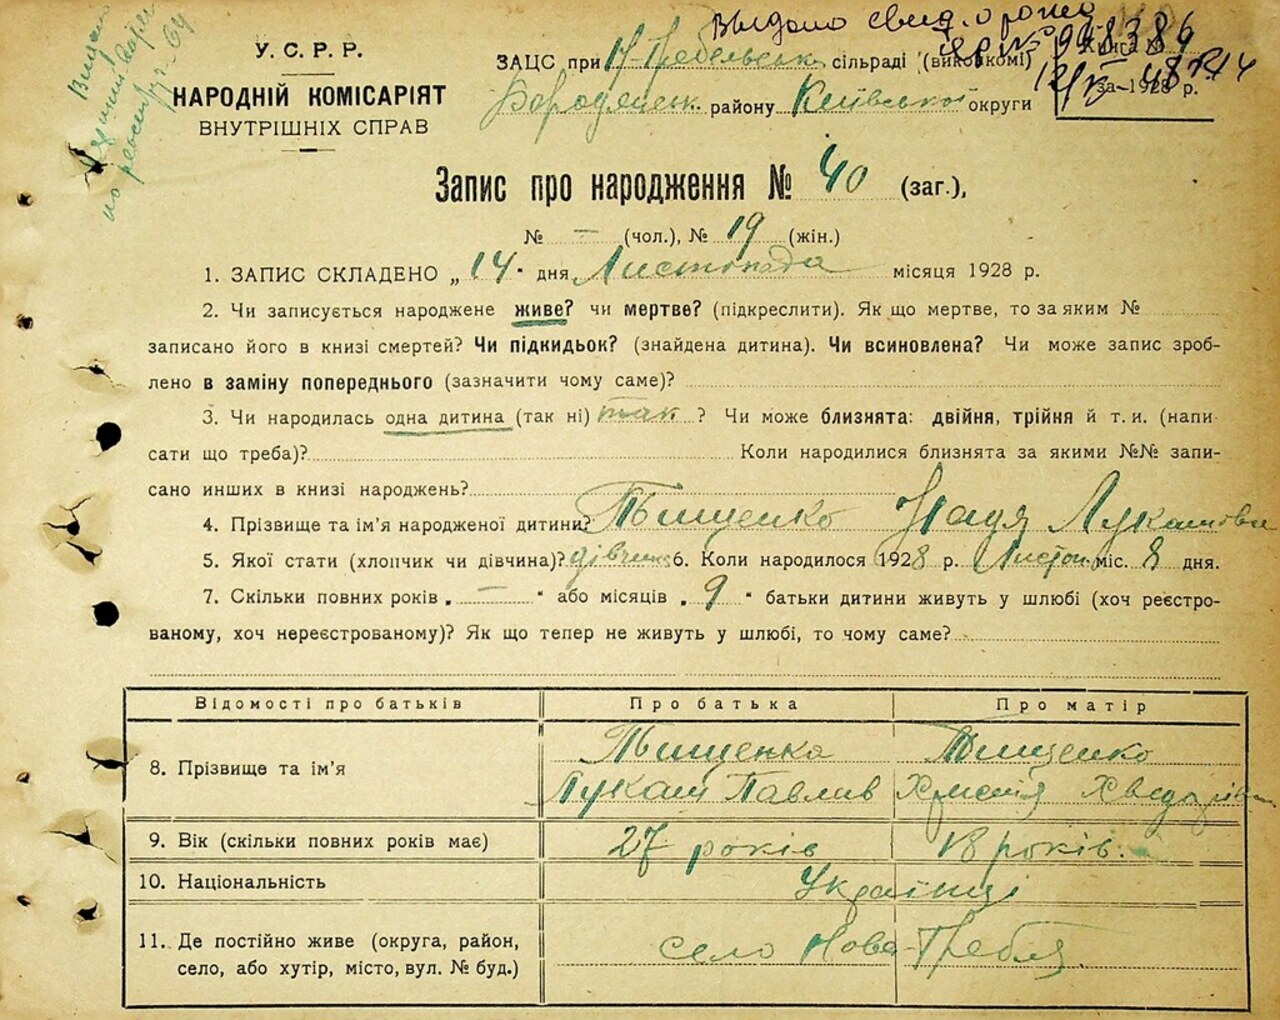 Видано свид. о рожд
У.С.Р.Р.
НАРОДНІЙ КОМІСАРІЯТ
ВНУТРІШНІХ СПРАВ
ЗАЦС при Н-Гребельськ. сільраді (виконкомі)
Бородянськ. району Київської округи
Книга №
за 1928 р.
Запис про народження № 40 (заг.),
№ — (чол.), № 19 (жін.)
1. ЗАПИС СКЛАДЕНО „14" дня Листопада місяця 1928 р.
2. Чи записується народжене живе? чи мертве? (підкреслити). Як що мертве, то за яким №
записано його в книзі смертей? Чи підкидьок? (знайдена дитина). Чи всиновлена? Чи може запис зроб-
лено в заміну попереднього (зазначити чому саме)?
3. Чи народилась одна дитина (так ні) так ? Чи може близнята: двійня, трійня й т. и. (напи-
сати що треба)? Коли народилися близнята за якими №№ запи-
сано инших в книзі народжень?
4. Прізвище та ім'я народженої дитини? Тищенко Надя Лукашовна
5. Якої стати (хлопчик чи дівчина)? дівчина 6. Коли народилося 1928 р. Листоп. міс. 8 дня.
7. Скільки повних років „ — " або місяців „ 9 " батьки дитини живуть у шлюбі (хоч реєстро-
ваному, хоч нереєстрованому)? Як що тепер не живуть у шлюбі, то чому саме?
Відомості про батьків Про батька Про матір
8. Прізвище та ім'я
Тищенко Тищенко
Лукаш Павлив
9. Вік (скільки повних років має) 27 років 18 років.
10. Національність Українці
11. Де постійно живе (округа, район,
село, або хутір, місто, вул. № буд.)
село Нова-Гребля